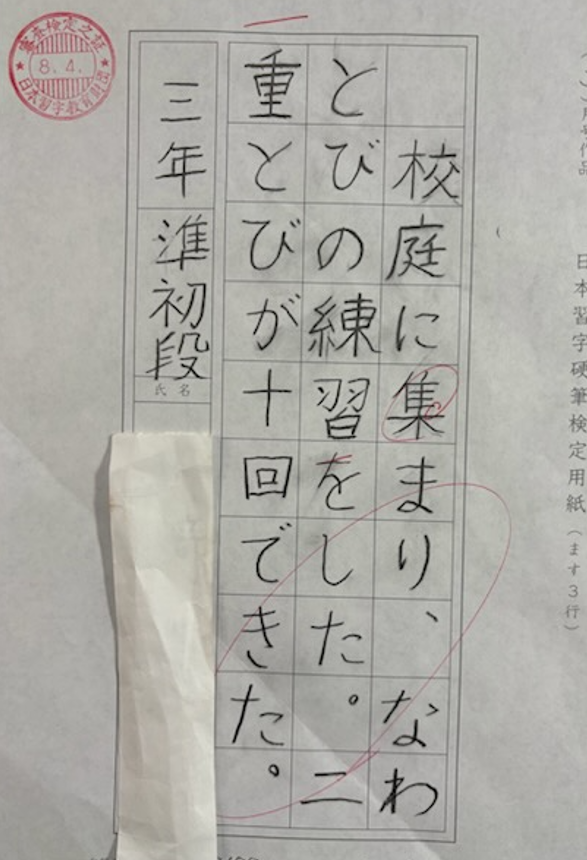 校庭に集まり、なわ
とびの練習をした。二
重とびが十回できた。
三年 準初段
氏名
審査検定之証
8.4.
日本習字教育財団
日本習字硬筆検定用紙(ます3行)